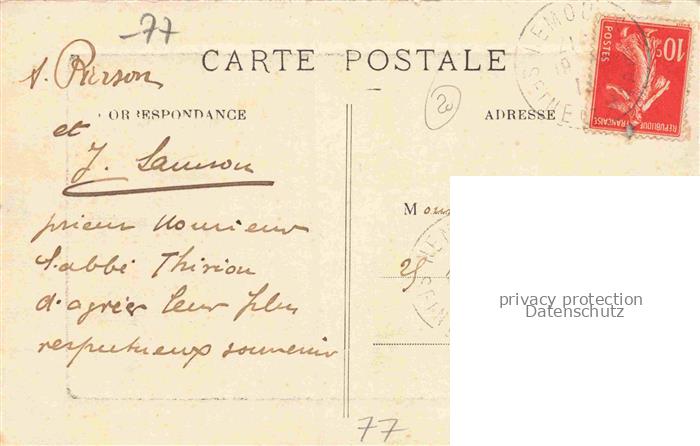 -77
CARTE POSTALE
A. Pierson
CORRESPONDANCE
et
J. Samson
prient Monsieur
l'abbé Thirion
d'agréer leur plus
respectueux souvenir
20
ADRESSE
NEMOURS
SEINE
10c
POSTES
REPUBLIQUE FRANÇAISE
Mon
NEM
SEINE
25
privacy protection
Datenschutz
77